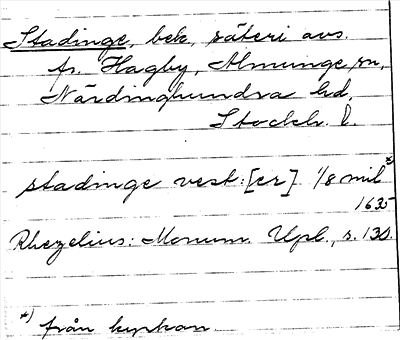 Stadinge, bek, säteri avs.
fr. Hagby, Almunge sn,
Närdinghundra hd,
Stockh. l.
stadinge vest: [er] 1/8 mil *)
1635
Rhezelius: Monum. Upl., s. 130.
*) från kyrkan